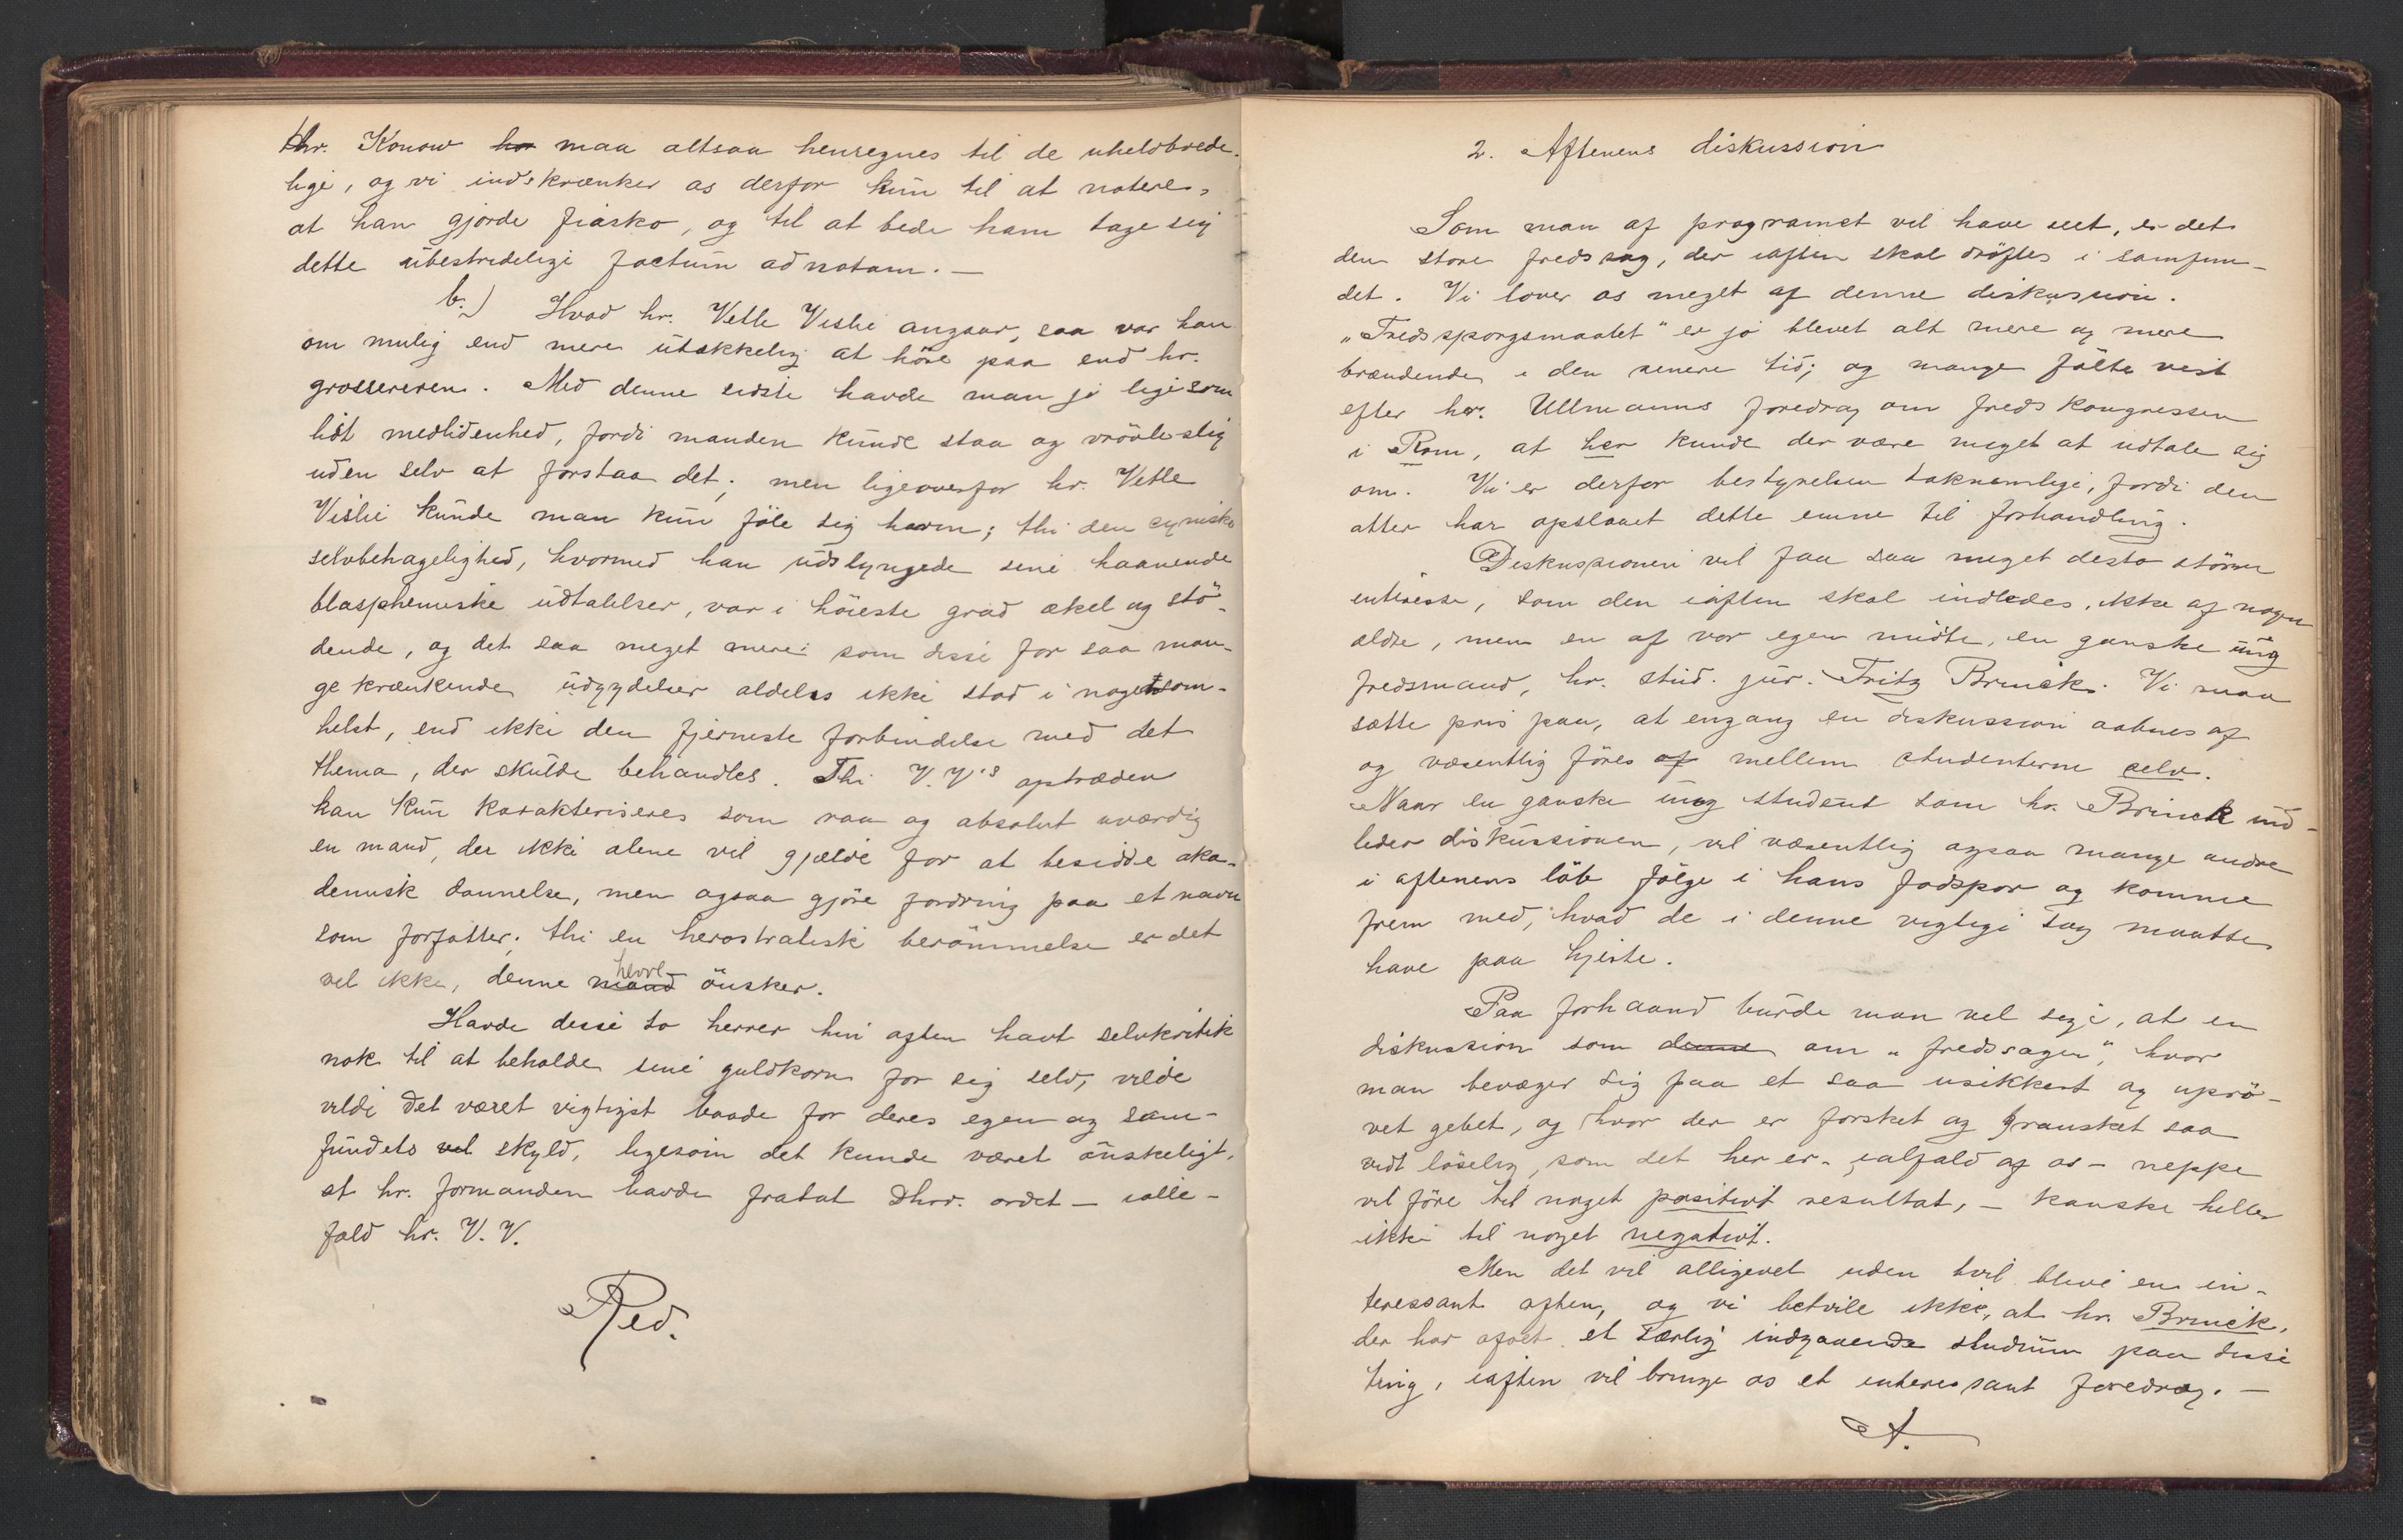 hr. Konow har maa altsaa henregnes til de uhelbrede-
lige, og vi indskrænker os derfor kun til at notere,
at han gjorde fiasko, og til at bede ham tage sig
dette ubestridelige factum ad notam. —
b.) Hvad hr. Vetle Vislie angaar, saa var han
om mulig end mere utækkelig at höre paa end hr.
grossereren. Med denne sidste havde man jo ligesom
lidt medlidenhed, fordi manden kunde staa og vrövle slig
uden selv at forstaa det; men ligeoverfor hr. Vetle
Vislie kunde man kun föle sig harm; thi den cyniske
selvbehagelighed, hvormed han udslyngede sine haanende
blasphemiske udtalelser, var i höieste grad ækel og stö-
dende, og det saa meget mere som disse for saa man-
ge krænkende udgydelser aldeles ikke stod i nogetsom-
helst, end ikke den fjerneste forbindelse med det
thema, der skulde behandles. Thi V.V's optræden
kan kun karakteriseres som raa og absolut uværdig
en mand, der ikke alene vil gjælde for at besidde aka-
demisk dannelse, men ogsaa gjöre fordring paa et navn
som forfatter; thi en herostratisk berömmelse er det
vel ikke, denne mand herre önsker.
Havde disse to herrer hin aften havt selvkritik
nok til at beholde sine guldkorn for sig selv, vilde
vilde det været vigtigst baade for deres egen og sam-
fundets vel skyld, ligesom det kunde været önskeligt,
at hr. formanden havde fratat dhrr. ordet — ialle-
fald hr. V.V.
Red.
2. Aftenens diskussion
Som man af programet vil have seet, er det
den store fredssag, der iaften skal dröftes i samfun-
det. Vi lover os meget af denne diskussion.
„Fredsspörgsmaalet" er jo blevet alt mere og mere
brændende i den senere tid; og mange fölte vist
efter hr. Ullmanns foredrag om fredskongressen
i Rom, at her kunde der være meget at udtale sig
om. Vi er derfor bestyrelsen taknemlige, fordi den
atter har opslaaet dette emne til forhandling.
Diskussionen vil faa saa meget desto större
interesse, som den iaften skal indledes, ikke af nogen
ældre, men en af vor egen midte, en ganske ung
fredsmand, hr. stud. jur. Fritz Brinck. Vi maa
sætte pris paa, at engang en diskussion aabnes af
og væsentlig föres af mellem studenterne selv.
Naar en ganske ung student som hr. Brinck ind-
leder diskussionen, vil væsentlig ogsaa mange andre
i aftenens löb fölge i hans fodspor og komme
frem med, hvad de i denne vigtige sag maatte
have paa hjerte.
Paa forhaand burde man vel sige, at en
diskussion som denne om „fredssagen", hvor
man bevæger sig paa et saa usikkert og uprö-
vet gebet, og hvor der er forsket og gransket saa
vidt löselig, som det her er - ialfald af os - neppe
vil före til noget positivt resultat, — kanske heller
ikke til noget negativt.
Men det vil alligevel uden tvil blive en in-
teressant aften, og vi betvile ikke, at hr. Brinck,
der har ofret et særlig indgaaende studium paa disse
ting, iaften vil bringe os et interessant foredrag. —
A.